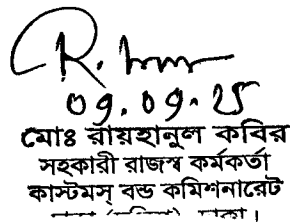 ০৭.০৭.২৫
মোঃ রায়হানুল কবির
সহকারী রাজস্ব কর্মকর্তা
কাস্টমস্ বন্ড কমিশনারেট